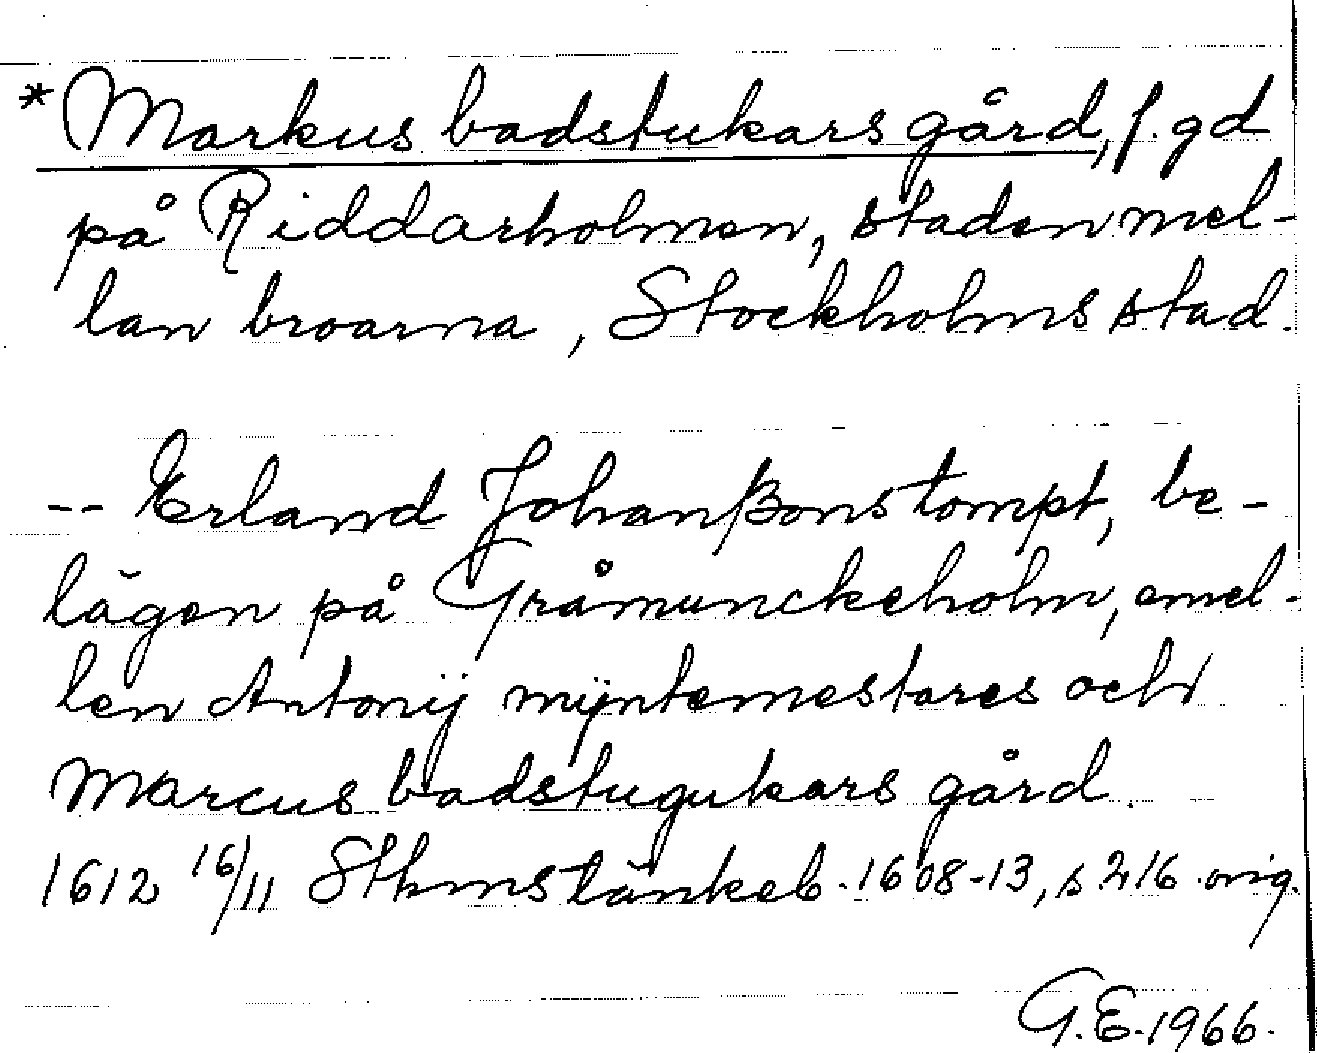 * Markus badstukars gård, f. gd
på Riddarholmen, staden mel-
lan broarna, Stockholms stad.
-- Erland Johanßons tompt, be-
lägen på Gråmunckeholm, emel-
len Antonij mÿntemestares och
Marcus badstugukars gård.
1612 16/11 Sthms tänkeb. 1608-13, s 216 orig.
G.E. 1966.